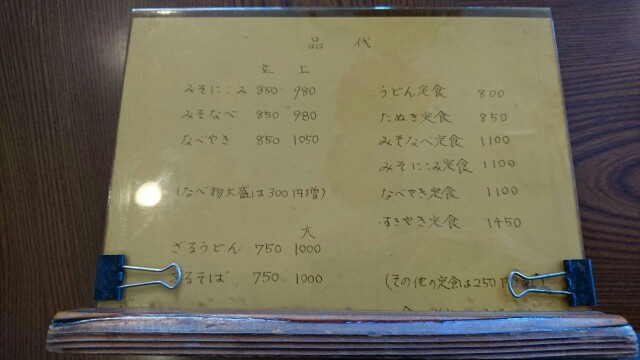 品代
並 上
みそにこみ 850 980
みそなべ 850 980
なべやき 850 1050
(なべ物大盛は300円増)
大
ざるうどん 750 1000
るそば 750 1000
うどん定食 800
たぬき定食 850
みそなべ定食 1100
みそにこみ定食 1100
なべやき定食 1100
すきやき定食 1450
(その他の定食は250円